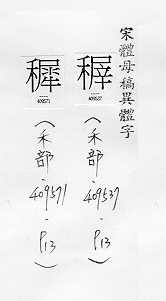 宋體母稿異體字
稺
409537
(禾部-409537-P.13)
穉
409571
(禾部-409571-P.13)